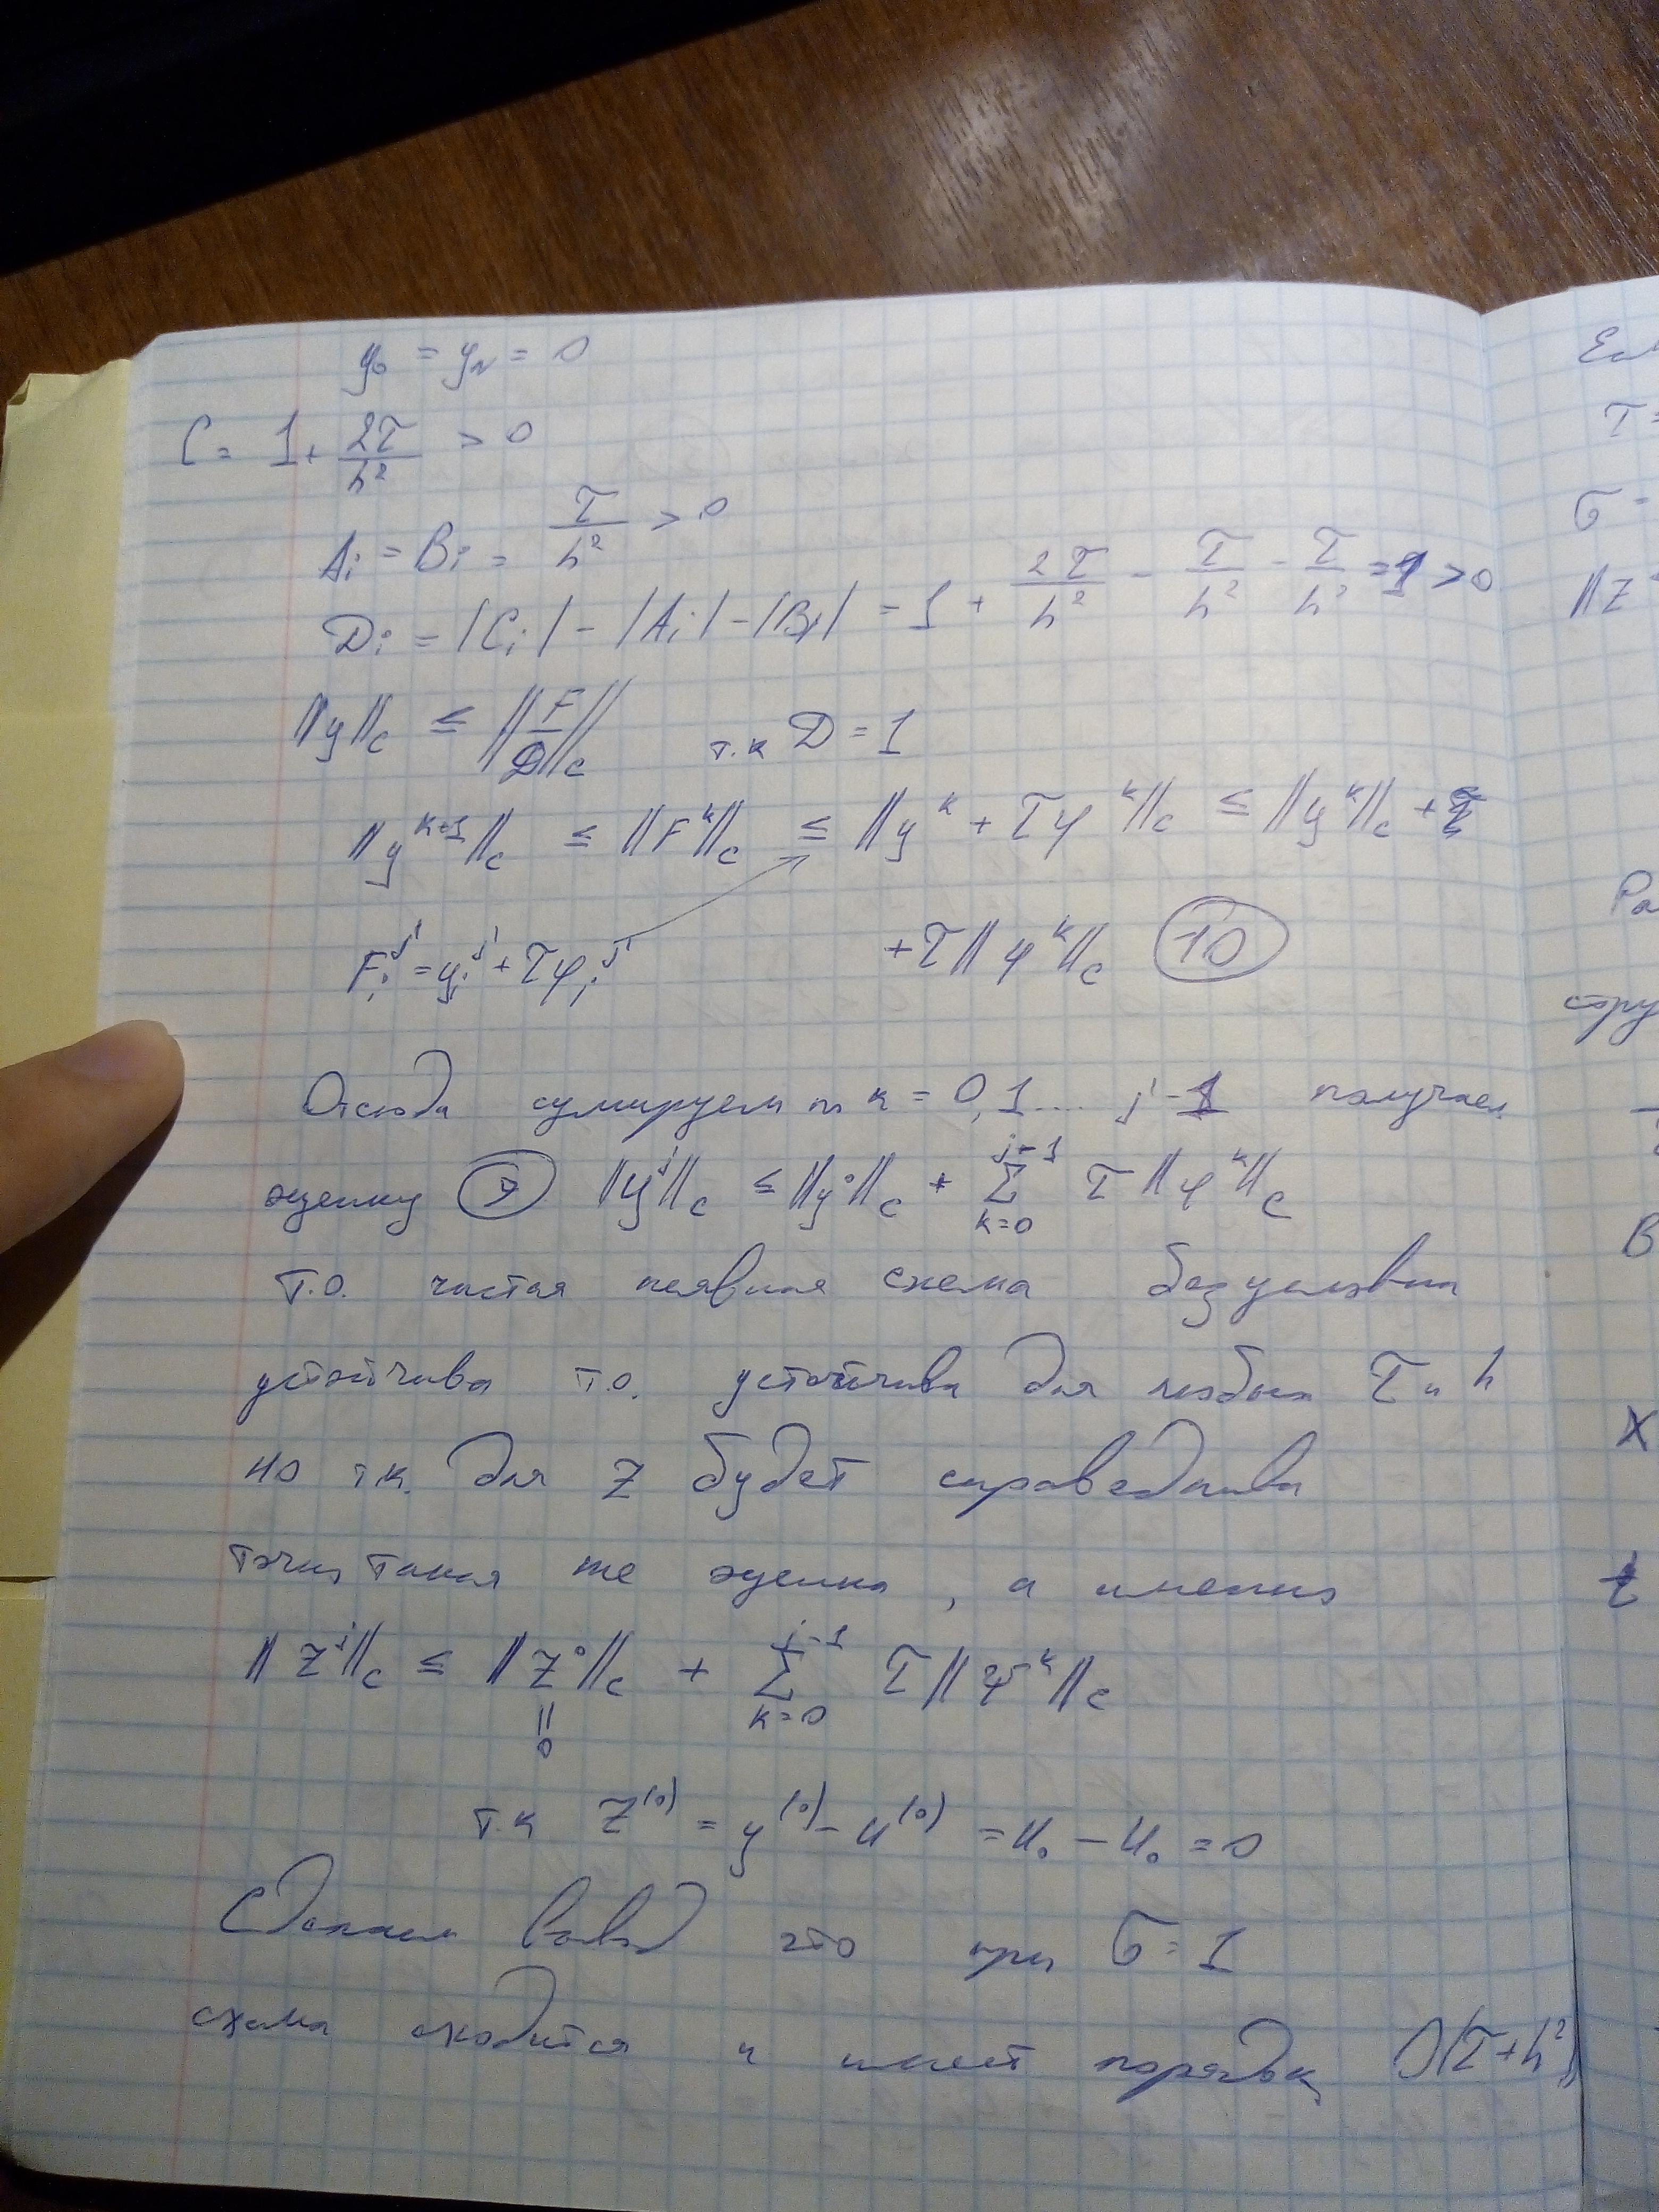 y₀ = y_N = 0
C = 1 + 2τ/h² > 0
Aᵢ = Bᵢ = τ/h² > 0
Dᵢ = |Cᵢ| - |Aᵢ| - |Bᵢ| = 1 + 2τ/h² - τ/h² - τ/h² = 1 > 0
||y||_C ≤ ||F/D||_C т.к D = 1
||y^{k+1}||_C ≤ ||F^k||_C ≤ ||y^k + τφ^k||_C ≤ ||y^k||_C +
Fᵢ^j = yᵢ^j + τφᵢ^j + τ||φ^k||_C (10)
Отсюда сумируем по k = 0,1.... j-1 получаем
оценку (9) ||y^j||_C ≤ ||y⁰||_C + Σ_{k=0}^{j-1} τ||φ^k||_C
т.о. чистая неявная схема безусловна
устойчива т.о. устойчива для любых τ и h
но т.к. для z будет справедлива
точно такая же оценка, а именно
||z^j||_C ≤ ||z⁰||_C + Σ_{k=0}^{j-1} τ||ψ^k||_C
||
0
т.к z^{(0)} = y^{(0)} - u^{(0)} = u₀ - u₀ = 0
Сделаем вывод что при σ = 1
схема сходится и имеет порядок O(τ+h²)
Ес
τ =
σ =
||z
Ра
В
X
t